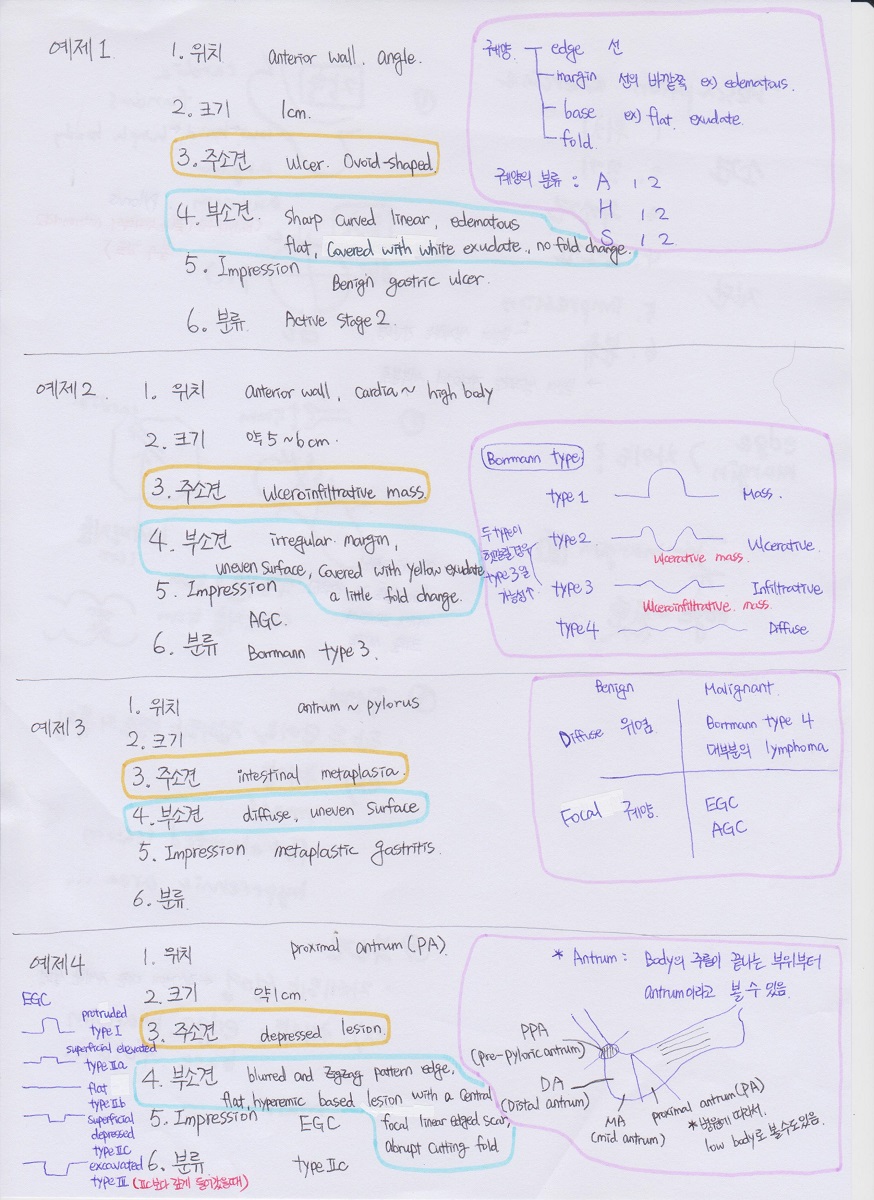 예제1
1. 위치 anterior wall, angle.
2. 크기 1cm.
3. 주소견 ulcer. Ovoid-shaped.
4. 부소견. Sharp curved linear, edematous
flat, Covered with white exudate., no fold change.
5. Impression Benign gastric ulcer.
6. 분류. Active Stage 2.
궤양. edge 선
margin 선의 바깥쪽 ex) edematous.
base ex) flat. exudate.
fold.
궤양의 분류 : A 1 2
H 1 2
S 1 2
예제2.
1. 위치 anterior wall, cardia ~ high body
2. 크기 약 5~6cm.
3. 주소견 ulceroinfiltrative mass.
4. 부소견 irregular margin,
uneven surface, covered with yellow exudate
a little fold change.
5. Impression AGC.
6. 분류 Borrmann type 3.
Borrmann type
type 1 Mass.
type 2 Ulcerative.
ulcerative mass.
type 3 Infiltrative
Ulceroinfiltrative mass.
type 4 Diffuse
두 type이
헷갈릴 경우
type 3일
가능성↑
예제3
1. 위치 antrum ~ pylorus
2. 크기
3. 주소견 intestinal metaplasia.
4. 부소견 diffuse, uneven surface
5. Impression metaplastic gastritis.
6. 분류
Benign Malignant
Diffuse 위염. Borrmann type 4
대부분의 lymphoma
Focal 궤양. EGC
AGC
예제4
1. 위치 proximal antrum (PA).
2. 크기 약 1cm.
3. 주소견 depressed lesion.
4. 부소견 blurred and zigzag pattern edge,
flat, hyperemic based lesion with a central
focal linear edged scar,
abrupt cutting fold
5. Impression EGC
6. 분류 type IIc
EGC
protruded
type I
superficial elevated
type IIa
flat
type IIb
superficial
depressed
type IIc
excavated
type III (IIc보다 깊게 들어갔을때)
* Antrum : Body의 주름이 끝나는 부위부터
antrum이라고 볼 수 있음.
PPA
(pre-pyloric antrum)
DA
(Distal antrum)
MA
(mid antrum)
proximal antrum (PA)
* 방향에 따라서.
low body로 볼 수도 있음.